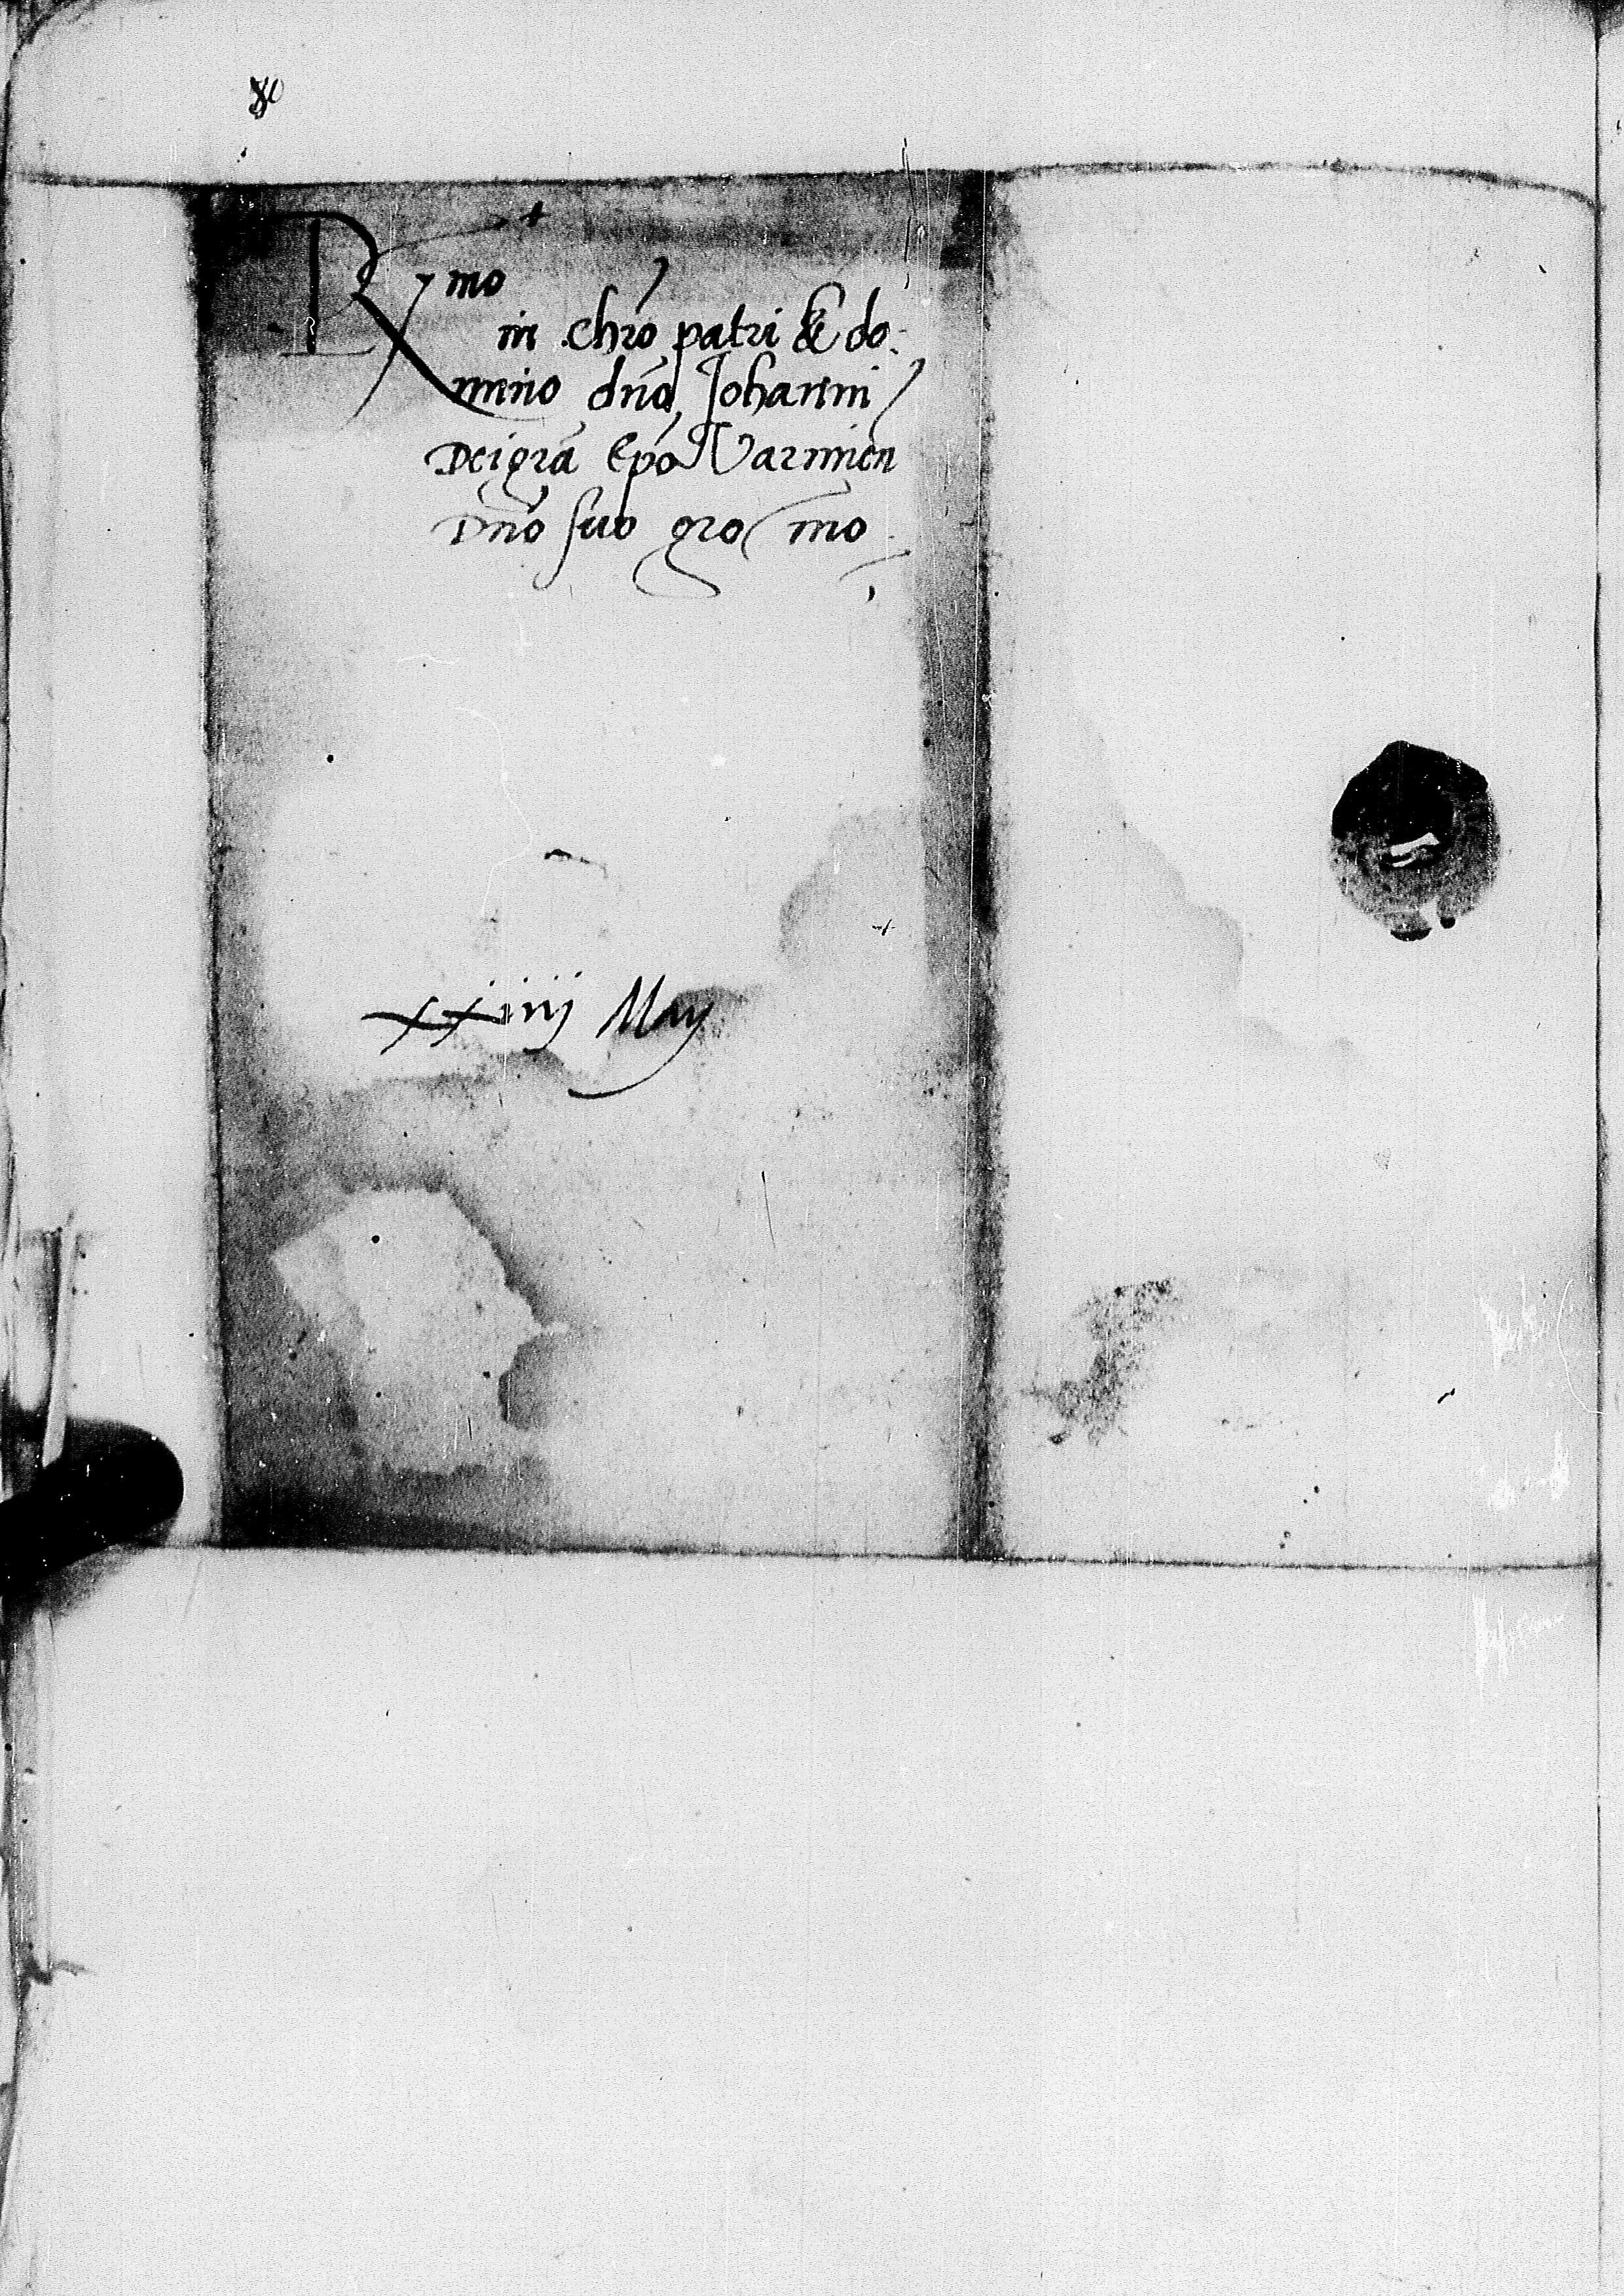 80
R mo
in Chro patri & do:
mino dno Johanni
Dei gra Epo Varmien
Dno suo gro mo
xxiiij May